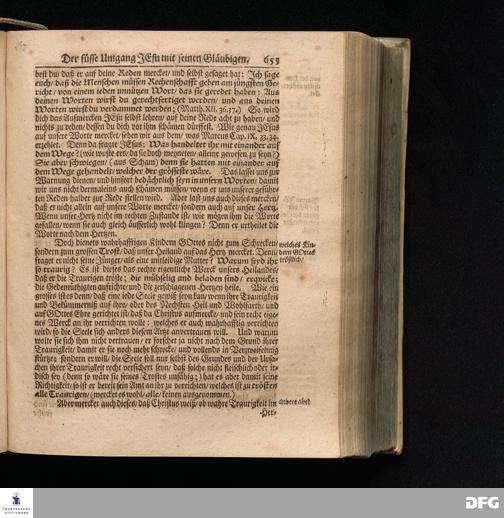 Der süsse Umgang JEsu mit seinen Gläubigen. 655
hest du/ daß er auf deine Reden mercket/ und selbst gesaget hat: Ich sage
euch/ daß die Menschen müssen Rechenschafft geben am jüngsten Ge-
richt/ von einem ieden unnützen Wort/ das sie geredet haben: Aus
deinen Worten wirst du gerechtfertiget werden/ und aus deinen
Worten wirst du verdammet werden; (Matth. XII. 36. 37.) So wird
dich das Aufmercken JEsu selbst lehren/ auf deine Rede acht zu haben/ und
nichts zu reden/ dessen du dich vor ihm schämen dürffest. Wie genau JEsus
auf unsere Worte mercket/ sehen wir aus dem/ was Marcus Cap. IX. 33. 34.
erzehlet. Denn da fragte JEsus: Was handeltet ihr mit einander auf
dem Wege? (wie wuste ers/ da sie doch meyneten/ alleine gewesen zu seyn?)
Sie aber schwiegen/ (aus Scham) denn sie hatten mit einander auf
dem Wege gehandelt/ welcher der grösseste wäre. Das lasset uns zur
Warnung dienen/ und hinfort bedächtlich seyn in unsern Worten/ damit
wir uns nicht dermaleins auch schämen müssen/ wenn er uns unserer geführ-
ten Reden halber zur Rede stellen wird. Aber last uns auch dieses mercken/
daß er nicht allein auf unsere Worte mercket/ sondern auch auf unser Hertz.
Wenn unser Hertz nicht im rechten Zustande ist/ wie mögen ihm die Worte
gefallen/ wenn sie auch gleich äusserlich wohl klingen? Denn er urtheilet die
Worte nach dem Hertzen.
Doch dienets wahrhafftigen Kindern GOttes nicht zum Schrecken/
sondern zum grossen Trost/ daß unser Heiland auf das Hertz mercket. Denn/
welches Kin-
dern GOttes
tröstlich/
fraget er nicht seine Jünger/ als eine mitleidige Mutter? Warum seyd ihr
so traurig? Es ist dieses das rechte eigentliche Werck unsers Heilandes/
daß er die Traurigen tröste; die mühselig und beladen sind/ erqvicke;
die Gedemüthigten aufrichte/ und die zerschlagenen Hertzen heile. Wie ein
grosses ist es denn/ daß eine iede Seele gewiß seyn kan/ wenn ihre Traurigkeit
und Bekümmerniß auf ihre/ oder des Nechsten Heil und Wohlfarth/ und
auf GOttes Ehre gerichtet ist/ daß da Christus aufmercke/ und sein recht eige-
nes Werck an ihr verrichten wolle: welches er auch wahrhafftig verrichten
wird/ so die Seele sich anders diesem Artzt anvertrauen will. Und warum
wolte sie sich ihm nicht vertrauen/ er forschet ja nicht nach dem Grund ihrer
Traurigkeit/ damit er sie noch mehr schrecke/ und vollends in Verzweifelung
stürtze; sondern er will/ die Seele soll nur selbst des Grundes und der Ursa-
chen ihrer Traurigkeit recht versichert seyn/ daß solche nicht fleischlich oder ir-
disch sey (denn so wäre sie seines Trostes unfähig;) hat es aber damit seine
Richtigkeit/ so ist er bereit sein Amt an ihr zu verrichten/ welches ist zu trösten
alle Traurigen/ (mercket es wohl/ alle/ keinen ausgenommen.)
Aber mercket auch dieses/ daß Christus weiß/ ob wahre Traurigkeit im
Her-
DFG